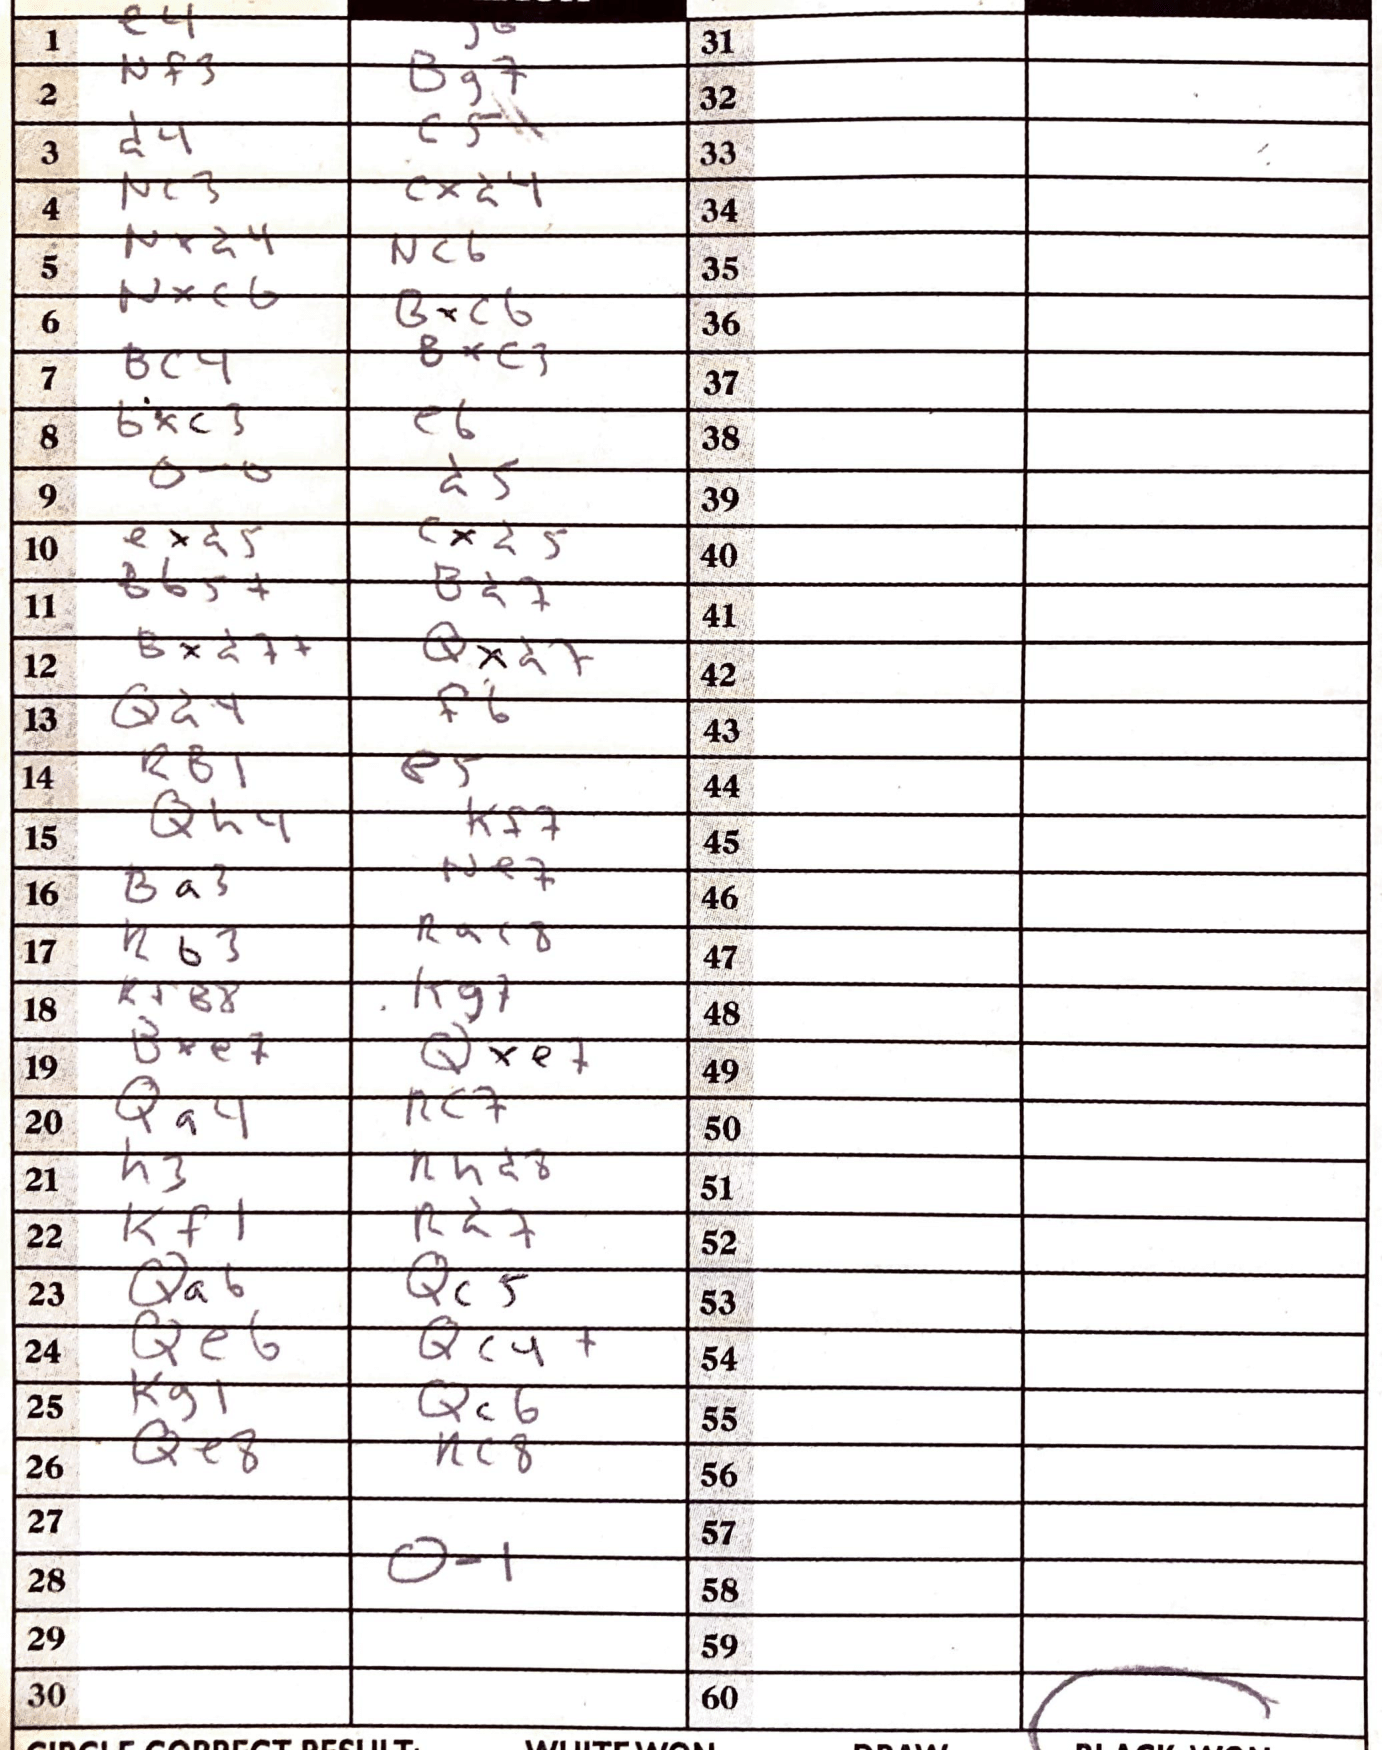 1 e4 g6 31
2 Nf3 Bg7 32
3 d4 c5 33
4 Nc3 cxd4 34
5 Nxd4 Nc6 35
6 Nxc6 Bxc6 36
7 Bc4 Bxc3 37
8 bxc3 e6 38
9 0-0 d5 39
10 exd5 cxd5 40
11 Bb5+ Bd7 41
12 Bxd7+ Qxd7 42
13 Qd4 f6 43
14 RB1 e5 44
15 Qh4 Kf7 45
16 Ba3 Ne7 46
17 Rb3 Rac8 47
18 Kg7 48
19 Bxe7 Qxe7 49
20 Qa4 Rc7 50
21 h3 Rhd8 51
22 Kf1 Rd7 52
23 Qa6 Qc5 53
24 Qe6 Qc4+ 54
25 Kg1 Qc6 55
26 Qe8 Rc8 56
27 57
28 0-1 58
29 59
30 60
CIRCLE CORRECT RESULT: WHITE WON DRAW BLACK WON